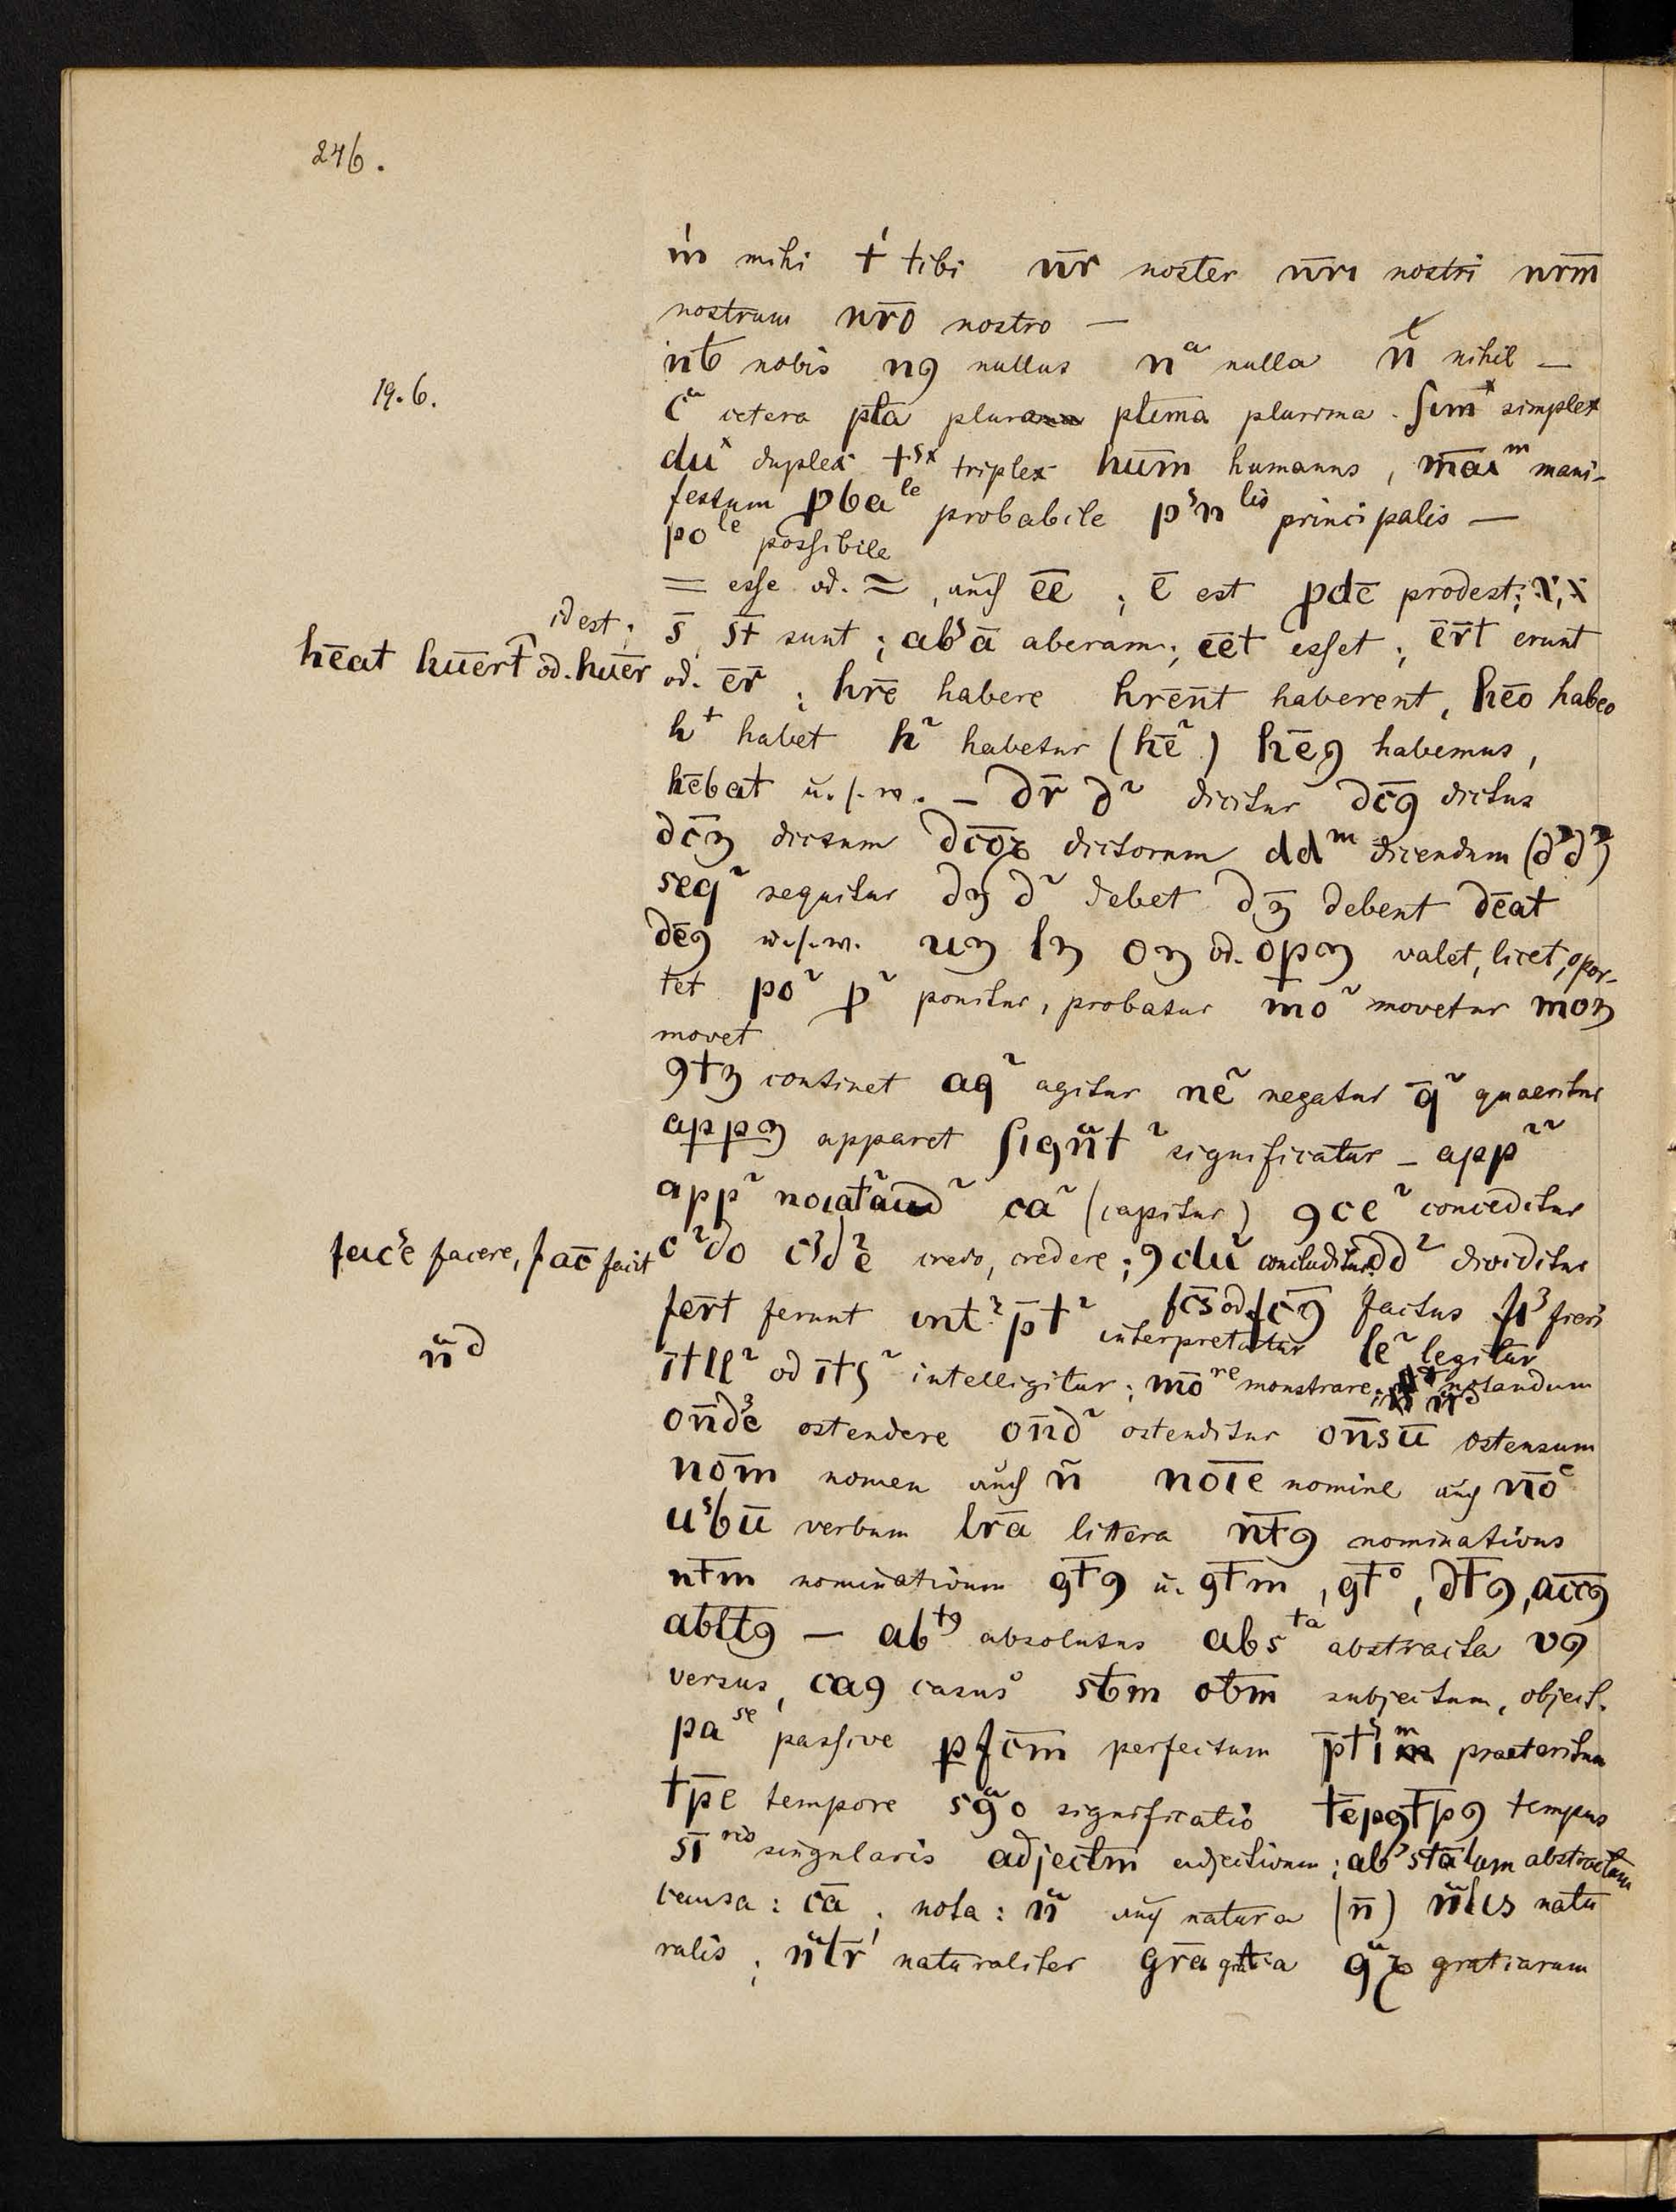 246.
m̍ mihi t̍ tibi nr̄ noster nrı̄ nostri nrm̄
nostrum nrō nostro —
nb̄ nobis nꝰ nullus nᵃ nulla nͭ nihil —
19.6.
cᵃ cetera plā plura plīma plurima. simˣ simplex
duˣ duplex tˢˣ triplex hūm humanus, māıᵐ mani-
festum ꝓbaˡᵉ probabile pˢnˡⁱˢ principalis —
poˡᵉ possibile
= esse od. ≈, auch ēē ; ē est ꝓdē prodest;
id est;
s̄ st̄ sunt ; abˢā aberam; ēēt esset ; ēr̄t erunt
hēat hūert̄ od. hūer
od. ēr̄ ; hr̄ē habere hrēn̄t haberent, hēo habeo
hᵗ habet h᷑ habetur (hē᷑) hēꝰ habemus,
hēbat u.s.w. — dr̄ d᷑ dicitur dc̄ꝰ dictus
dc̄ꝫ dictum dc̄oꝝ dictorum ddᵐ dicendum (dᵌdᵌ)
seq᷑ sequitur dꝫ d᷑ debet dꝫ̄ debent dēat
dēꝰ u.s.w. uꝫ lꝫ oꝫ od. oꝑꝫ valet, licet, opor-
tet po᷑ ꝓ᷑ ponitur, probatur mo᷑ movetur moꝫ
movet
ꝯtꝫ continet ag᷑ agitur ne᷑ negatur q̄᷑ quaeritur
apꝑꝫ apparet signᵃt᷑ significatur — app᷑᷑
app᷑ ca᷑ (capitur) ꝯce᷑ conceditur
facˢe facere, fac̄ facit
c᷑do cᵌdᵌe credo, credere ; ꝯclu᷑ concluditur dd᷑ dividitur
fer̄t ferunt int᷑p̄t᷑ interpretatur fc̄s od. fc̄ꝰ factus fiᵌ fieri
le᷑ legitur
nᵃd
ītll᷑ od ītꝭ᷑ intelligitur ; mōʳᵉ monstrare; notandum
on̄dᵌe ostendere on̄d᷑ ostenditur on̄sū ostensum
nōm nomen auch n̄ nōīe nomine auch nōᵉ
uˢbū verbum lrā littera nt̄ꝰ nominativus
nt̄m nominativum gt̄ꝰ u. gt̄m, gt̄ᵒ, dt̄ꝰ, acc̄ꝰ
ablt̄ꝰ — abᵗꝰ absolutus absᵗᵃ abstracta vꝰ
versus, caꝰ casus sb̄m ob̄m subjectum, object.
paˢᵉ passive ꝑfc̄m perfectum p̄tˢıᵐ praeteritum
tp̄e tempore sgᵃo significatio tēpꝰ tp̄ꝰ tempus
sı̄ʳⁱˢ singularis adjectm̄ adjectivum ; abˢstātum abstractum
causa : cā ; nota : nᵃ auch natura (n̄) nᵃlis natu
ralis ; nᵃlr̍ naturaliter grā gratia gᵃꝝ gratiarum